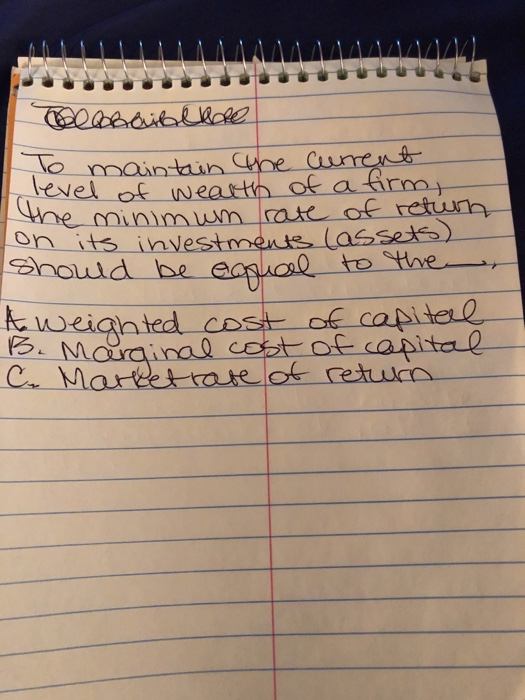 To maintain the current
level of wealth of a firm,
the minimum rate of return
on its investments (assets)
should be equal to the —.
A. weighted cost of capital
B. Marginal cost of capital
C. Market rate of return